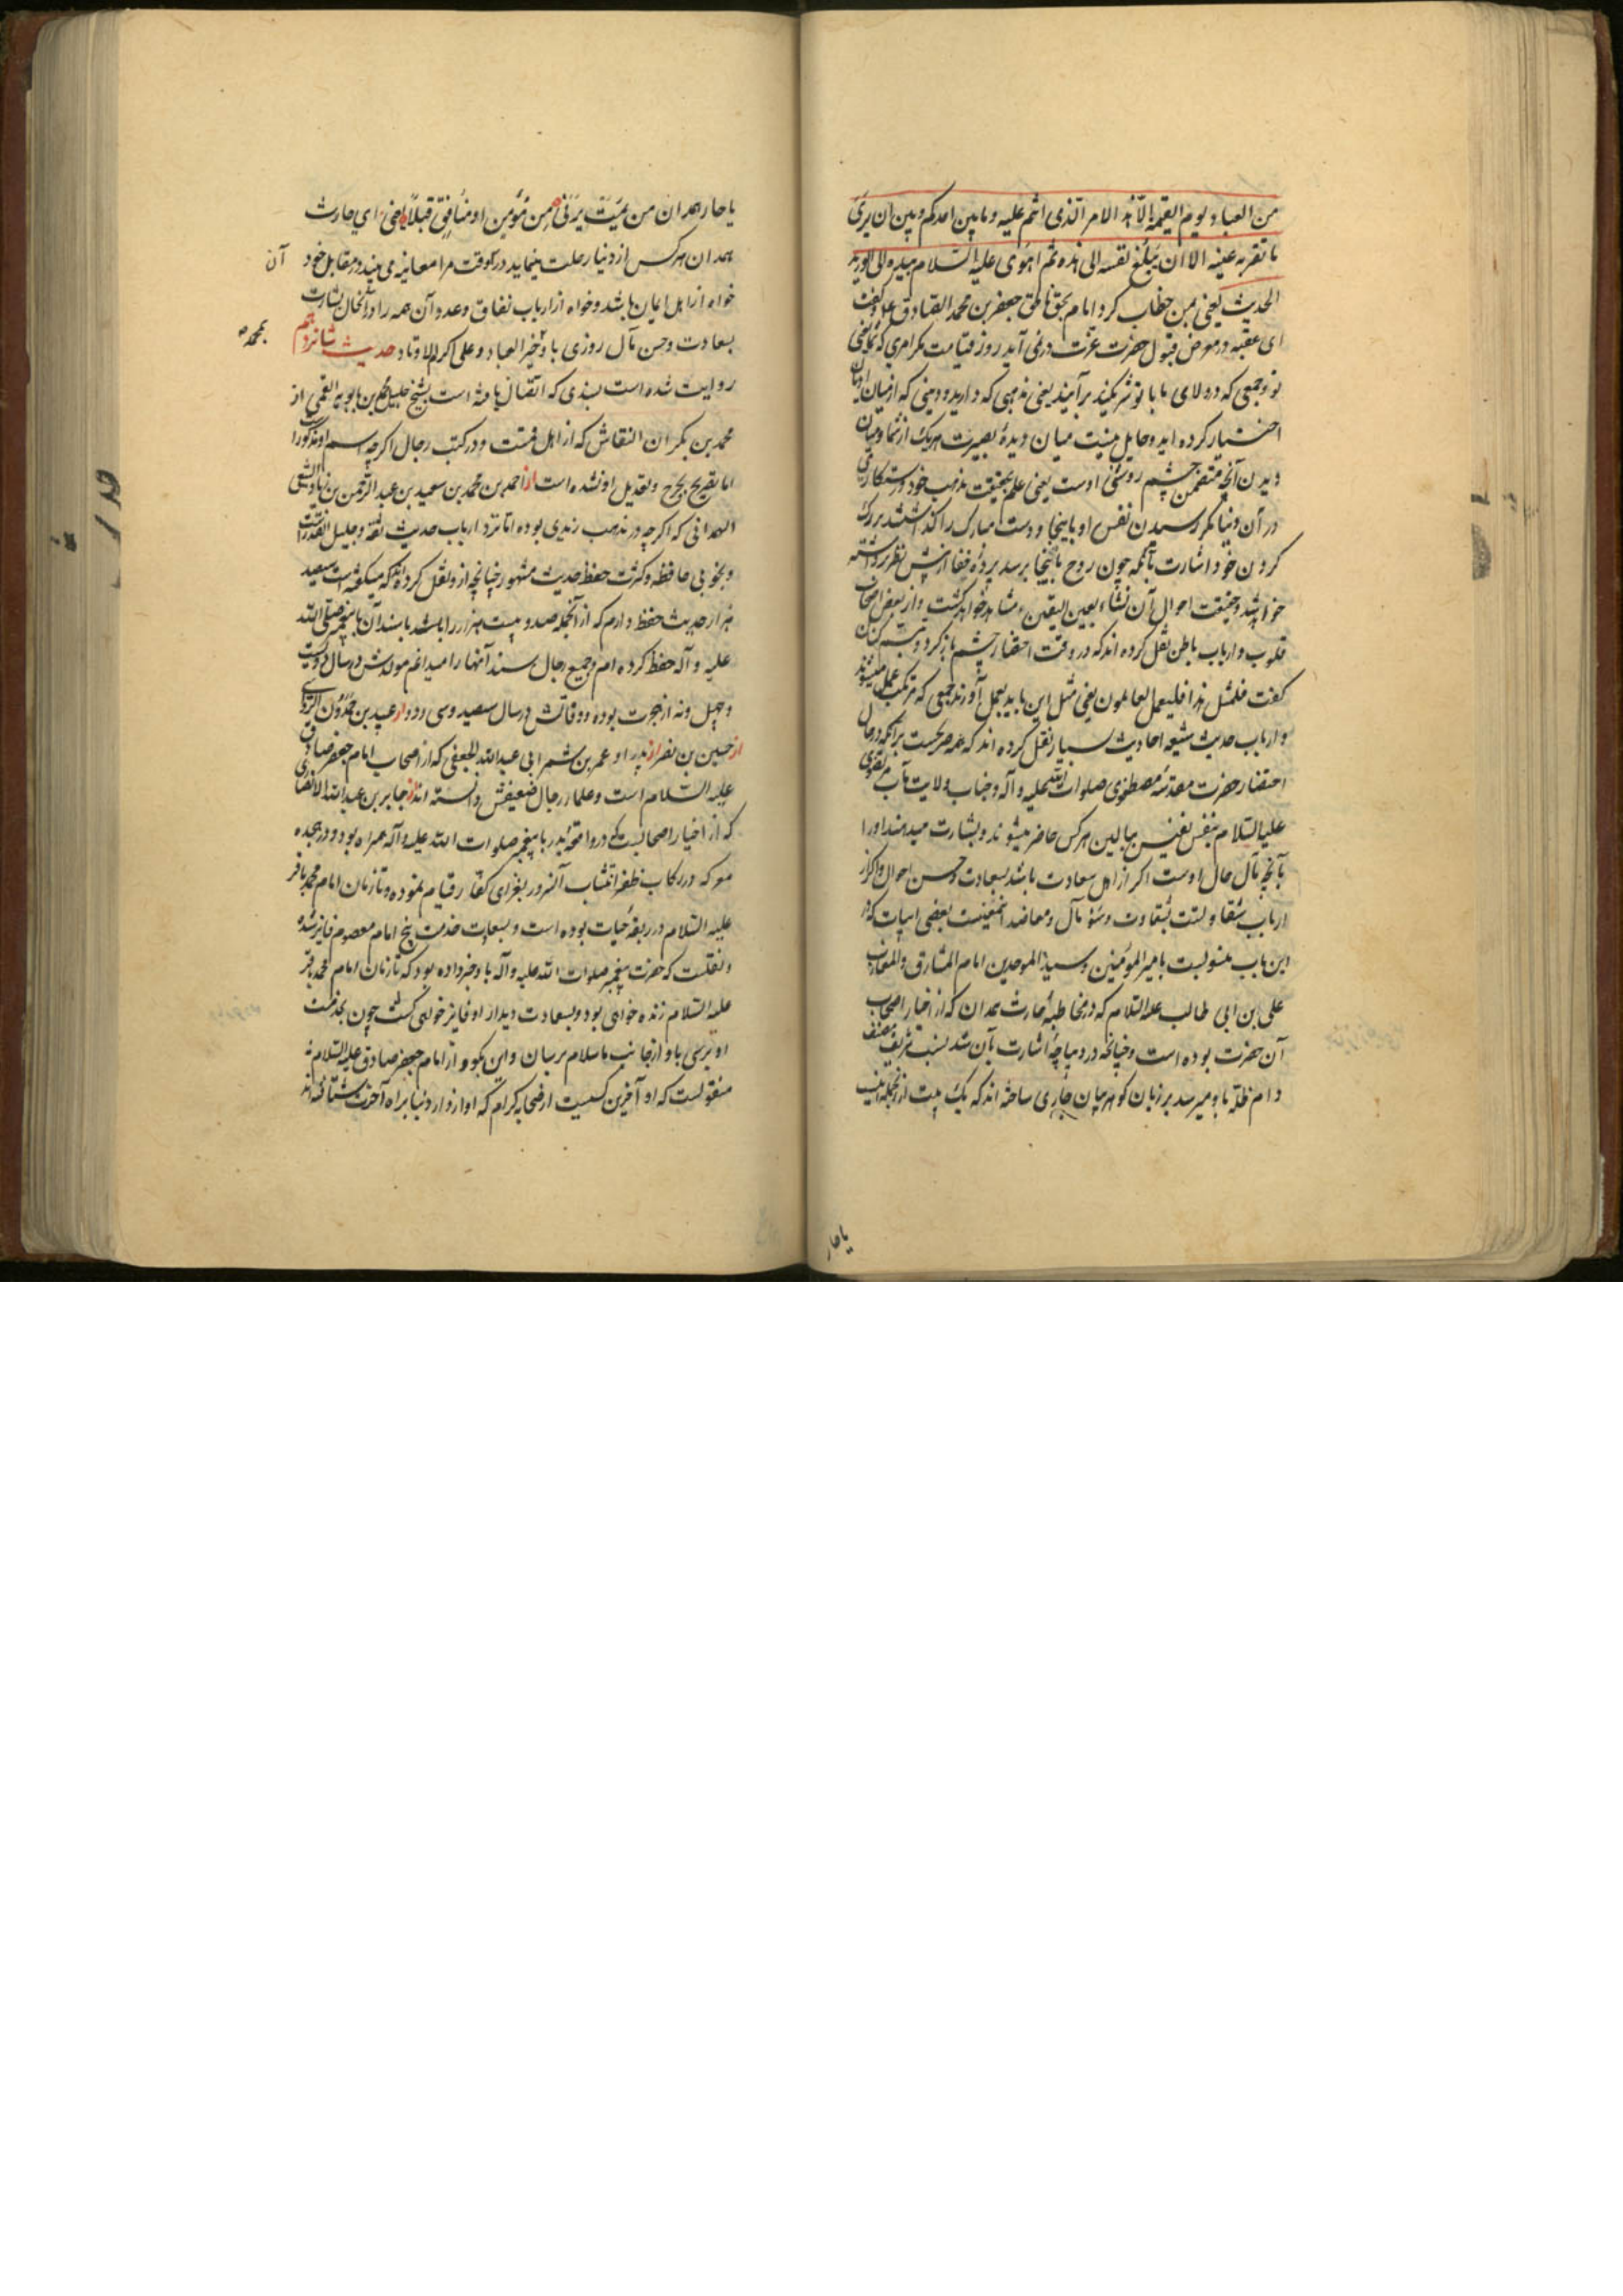 من العباد يوم القيمة الا هذا الامر الذى انتم عليه و ما بين احدكم و بين ان يرى
ما تقر به عينه الا ان يبلغ نفسه الى هذه ثم اهوى عليه السلام بيده الى الوريد
الحديث يعنى بمن خطاب كرد امام بحق ناطق جعفر بن محمد الصادق و كفت
اى عقبه در معرض قبول حضرت عزت در نمى آيد روز قيامت مكر امرى كه
تو و جمعى كه در ولاى ما با تو شريكند برآنيد يعنى مذهبى كه داريد و دينى كه از ميان
اختيار كرده ايد و حايل نيست ميان ديدهٔ بصيرت هريك از شما و ميان
ديدن آنچه متضمن چشم روشنى اوست يعنى علم بحقيقت مذهب خود و رستكارى
در آن دنيا مكر رسيدن نفس او باينجا و دست مبارك را
كردن خود اشارت بآنكه چون روح باينجا برسد پردهٔ خفا از پيش نظر برداشته
خواهد شد و حقيقت احوال آن نشاء بعين اليقين مشاهد خواهد كشت و از بعض اصحاب
قلوب و ارباب باطن نقل كرده اند كه در وقت احتضار چشم باز كرد و تبسم كنان
كفت فلمثل هذا فليعمل العاملون يعنى مثل اين بايد بعمل آورند جمعى كه مرتكب عمل ميشوند
و ارباب حديث شيعه احاديث بسيار نقل كرده اند كه همه صريحست برآنكه در حال
احتضار حضرت مقدسهٔ مصطفوى صلوات الله عليه و آله و جناب ولايت مآب مرتضوى
عليه السلام بنفس نفيس ببالين هركس حاضر ميشوند و بشارت ميدهند او را
بآنچه مآل حال اوست اكر از اهل سعادت باشد بسعادت و حسن احوال و اكر از
ارباب شقاوتست بشقاوت و سوء مآل و معاضد اينمعنيست بعضى ابيات كه در
اين باب منسوبست بامير المؤمنين و سيد الموحدين امام المشارق و المغارب
على بن ابى طالب عليه السلام كه در مخاطبهٔ حارث همدان كه از اخيار اصحاب
آن حضرت بوده است و چنانچه در ديباچه اشارت بآن شد نسب شريف مصنف
دام ظله باو ميرسد بر زبان كوهر بيان جارى ساخته اند كه يك بيت از آنجمله اينست
يا حار
يا حار همدان من يمت يرنى من مؤمن او منافق قبلا يعنى اى حارث
همدان هركس از دنيا رحلت مينمايد در آنوقت مرا معاينه مى بيند در مقابل خود آن
خواه از اهل ايمان باشد و خواه از ارباب نفاق و عدوان همه را در آنحال بشارت
بسعادت و حسن مآل روزى باد بخير العباد و على اكرم الاوتاد حديث شانزدهم
بمحمد
روايت شده است بسندى كه اتصال يافته است بشيخ جليل محمد بن بابويه القمى از
محمد بن بكران النقاش كه از اهل قمست و در كتب رجال اكرچه اسم او مذكور
اما تصريح بجرح و تعديل او نشده است از احمد بن محمد بن سعيد بن عبد الرحمن بن زياد
الهمدانى كه اكرچه در مذهب زيدى بوده اما نزد ارباب حديث ثقه و جليل القدر است
و بخوبى حافظه و كثرت حفظ حديث مشهور چنانچه از او نقل كرده اند كه ميكفته است سيصد
هزار حديث حفظ دارم كه از آنجمله صد و بيست هزار را باشد باسند آن با پيغمبر صلى الله
عليه و آله حفظ كرده ام و جميع رجال سند آنها را ميدانم مولدش در سال دويست
و چهل و نه از هجرت بوده و وفاتش در سال سيصد و سى و دو از عبيد بن حمدون
از حسين بن نصر از پدر او عمر بن شمر ابى عبد الله الجعفى كه از اصحاب امام جعفر صادق
عليه السلام است و علماء رجال ضعيفش دانسته اند از جابر بن عبد الله الانصارى
كه از اخيار اصحابست در واقعه بدر با پيغمبر صلوات الله عليه و آله همراه بود و در هجده
معركه در ركاب ظفر انتساب آنسرور بغزاى كفار قيام نموده و تا زمان امام محمد باقر
عليه السلام در ربقهٔ حيات بوده است و بسعادت خدمت پنج امام معصوم فايز شده
و نقلست كه حضرت پيغمبر صلوات الله عليه و آله باو خبر داده بود كه تا زمان امام محمد باقر
عليه السلام زنده خواهى بود و بسعادت ديدار او فايز خواهى كشت چون بخدمت
او برسى باو از جانب ما سلام برسان و اين بكو و از امام جعفر صادق عليه السلام
منقولست كه او آخرين كسيست از صحابه كرام كه او از دار دنيا براه آخرت شتافته اند